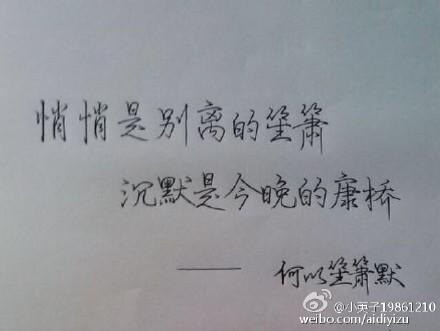 悄悄是别离的笙箫
沉默是今晚的康桥
—— 何以笙箫默
@小英子19861210
weibo.com/aidiyizu